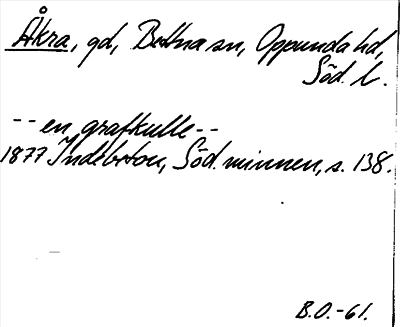 Åkra, gd, Bettna sn, Oppunda hd,
Söd. l.
-- en grafkulle --
1877 Indebetou, Söd. minnen, s. 138.
B.O.-61.